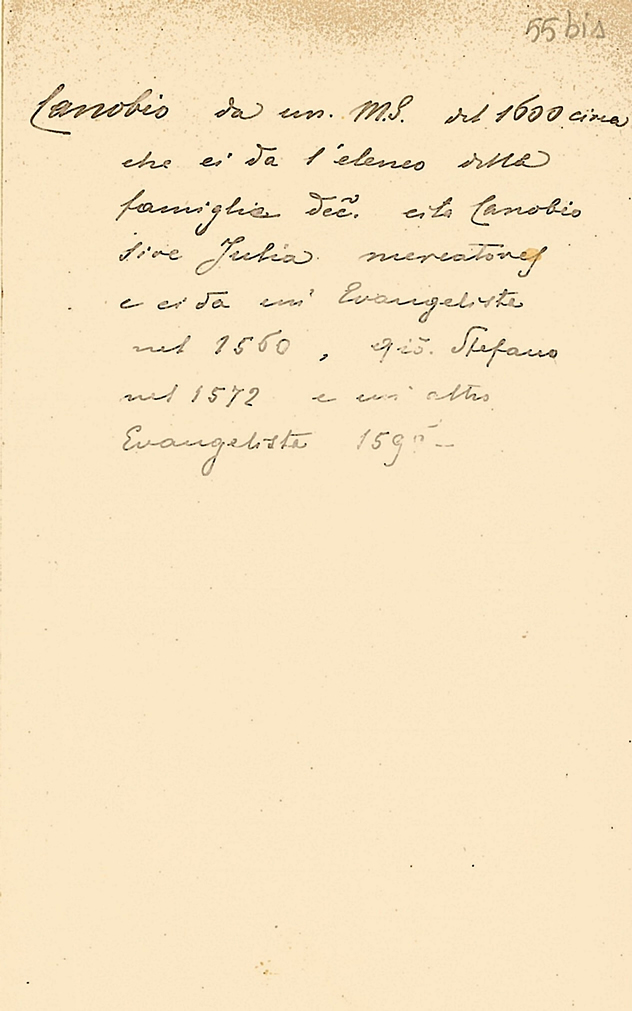 55 bis
Canobio da un. M.S. del 1600 circa
che ci da l'elenco della
famiglie decc. cita Canobio
sive Julia mercatores
e ci da un' Evangelista
nel 1560, gio. Stefano
nel 1572 e un' altro
Evangelista